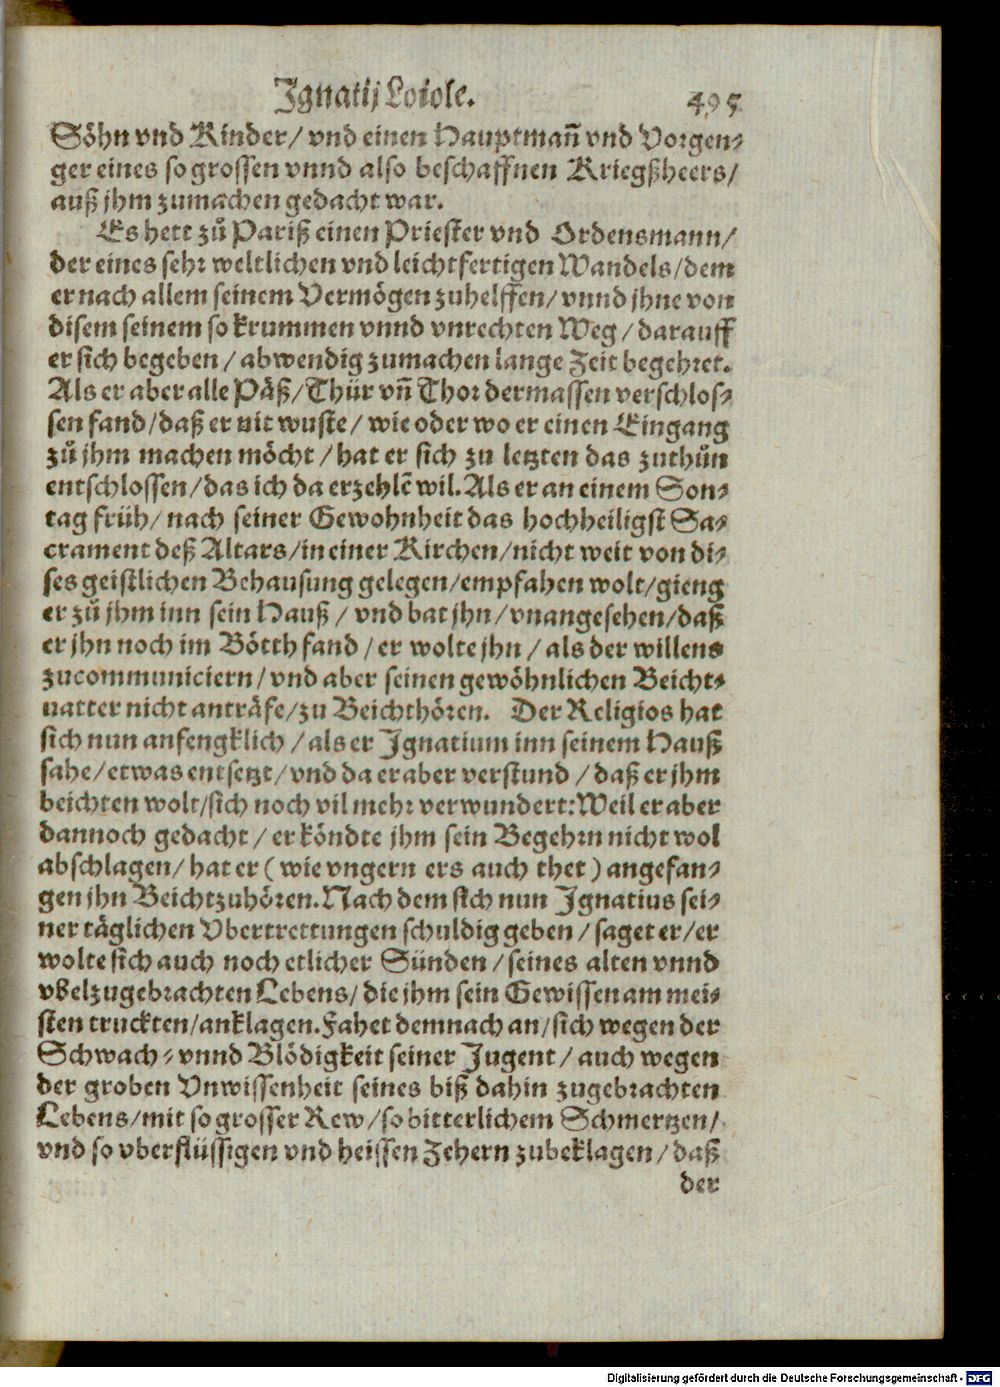 Ignatij Loiole. 495
Söhn vnd Kinder/ vnd einen Hauptmañ vnd Vorgen-
ger eines so grossen vnnd also beschaffnen Kriegßheers/
auß jhm zumachen gedacht war.
Es hett zů Pariß einen Priester vnd Ordensmann/
der eines sehr weltlichen vnd leichtfertigen Wandels/ dem
er nach allem seinem Vermögen zuhelffen/ vnnd jhne von
disem seinem so krummen vnnd vnrechten Weg/ darauff
er sich begeben/ abwendig zumachen lange Zeit begehret.
Als er aber alle Päß/ Thür vñ Thor dermassen verschlos-
sen fand/ daß er nit wuste/ wie oder wo er einen Eingang
zů jhm machen möcht/ hat er sich zu letzten das zuthůn
entschlossen/ das ich da erzehlẽ wil. Als er an einem Son-
tag früh/ nach seiner Gewohnheit das hochheiligst Sa-
crament deß Altars/ in einer Kirchen/ nicht weit von di-
ses geistlichen Behausung gelegen/ empfahen wolt/ gieng
er zů jhm inn sein Hauß/ vnd bat jhn/ vnangesehen/ daß
er jhn noch im Bötth fand/ er wolte jhn/ als der willens
zucommuniciern/ vnd aber seinen gewöhnlichen Beicht-
uatter nicht anträfe/ zu Beichthören. Der Religios hat
sich nun anfengklich/ als er Ignatium inn seinem Hauß
sahe/ etwas entsetzt/ vnd da er aber verstund/ daß er jhm
beichten wolt/ sich noch vil mehr verwundert: Weil er aber
dannoch gedacht/ er köndte jhm sein Begehrn nicht wol
abschlagen/ hat er (wie vngern ers auch thet) angefan-
gen jhn Beichtzuhören. Nach dem sich nun Ignatius sei-
ner täglichen Vbertrettungen schuldig geben/ saget er/ er
wolte sich auch noch etlicher Sünden/ seines alten vnnd
vbelzugebrachten Lebens/ die jhm sein Gewissen am mei-
sten truckten/ anklagen. Fahet demnach an/ sich wegen der
Schwach- vnnd Blödigkeit seiner Jugent/ auch wegen
der groben Vnwissenheit seines biß dahin zugebrachten
Lebens/ mit so grosser Rew/ so bitterlichem Schmertzen/
vnd so vberflüssigen vnd heissen Zehern zubeklagen/ daß
der
Digitalisierung gefördert durch die Deutsche Forschungsgemeinschaft - DFG